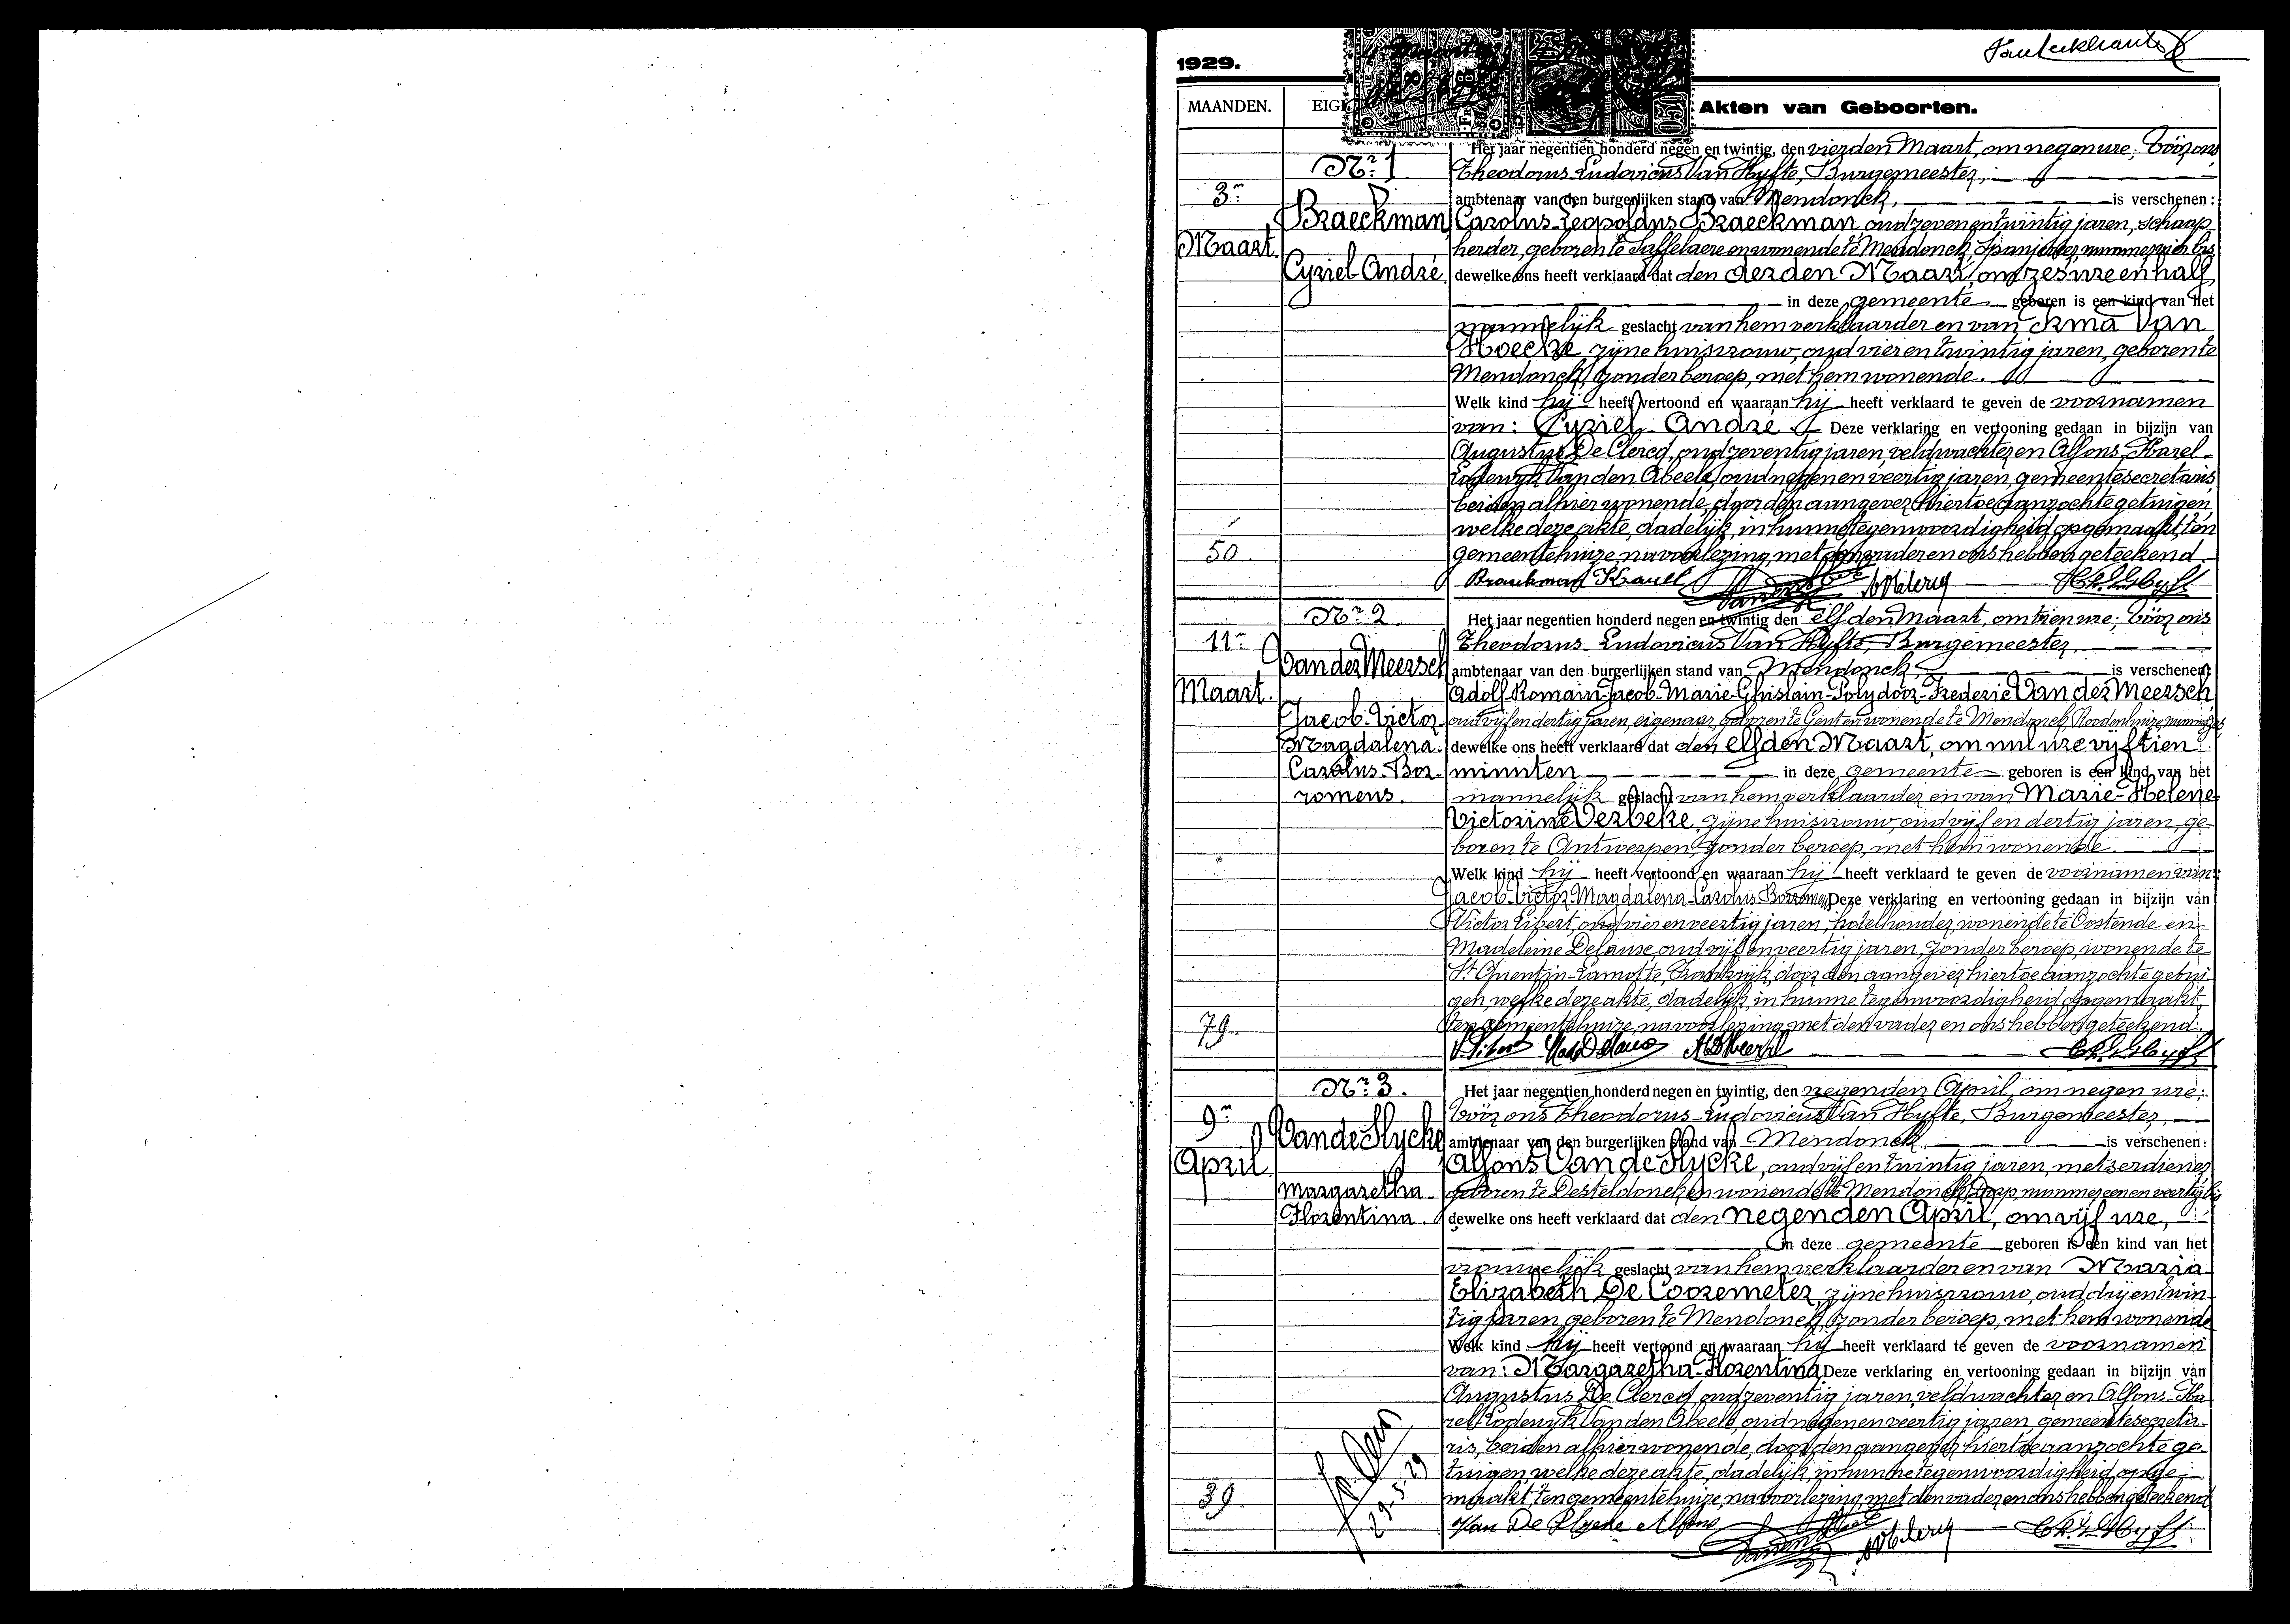 1929.
MAANDEN.
Akten van Geboorten.
Nr. 1
3n
Maart.
Braeckman
Cyriel-André.
50
Het jaar negentien honderd negen en twintig, den vierden Maart, om negen ure; vóór ons
Theodorus-Ludovicus Van Hyfte, Burgemeester,
ambtenaar van den burgerlijken stand van Mendonck, is verschenen:
Carolus-Leopoldus Braeckman, oud zeven en twintig jaren, schaap
herder, geboren te Saffelaere en wonende te Mendonck, nummer bis
dewelke ons heeft verklaard dat den derden Maart, om zes ure en half,
in deze gemeente geboren is een kind van het
mannelijk geslacht van hem verklaarder en van Irma Van
Hoecke, zijne huisvrouw, oud vier en twintig jaren, geboren te
Mendonck, zonder beroep, met hem wonende.
Welk kind hij heeft vertoond en waaraan hij heeft verklaard te geven de voornamen
van: Cyriel-André. Deze verklaring en vertooning gedaan in bijzijn van
Augustus De Clercq, oud zeventig jaren, veldwachter en Alfons-Karel-
Lodewijk Van den Abeele, oud negen en veertig jaren, gemeentesecretaris,
beiden alhier wonende, door den aangever hiertoe aanzochte getuigen,
welke deze akte, dadelijk, in hunne tegenwoordigheid opgemaakt, ten
gemeentehuize, na voorlezing, met den vader en ons hebben geteekend.
Braeckman Karel
Nr. 2
11n
Maart.
Van der Meersch
Jacob-Victor-
Magdalena-
Carolus-Bor-
romeus.
79.
Het jaar negentien honderd negen en twintig den elfden Maart, om tien ure; vóór ons
Theodorus-Ludovicus Van Hyfte, Burgemeester,
ambtenaar van den burgerlijken stand van Mendonck, is verschenen:
Adolf-Romain-Jacob-Marie-Ghislain-Polydoor-Frederic Van der Meersch
oud vijf en dertig jaren, eigenaar, geboren te Gent en wonende te Mendonck, Roodenhuize, nummer zes
dewelke ons heeft verklaard dat den elfden Maart, om nul ure vijftien
minuten in deze gemeente geboren is een kind van het
mannelijk geslacht van hem verklaarder en van Marie-Helene-
Victorine Verbeke, zijne huisvrouw, oud vijf en dertig jaren, ge-
boren te Antwerpen, zonder beroep, met hem wonende.
Welk kind hij heeft vertoond en waaraan hij heeft verklaard te geven de voornamen van:
Jacob-Victor-Magdalena-Carolus-Borromeus Deze verklaring en vertooning gedaan in bijzijn van
Victor Libert, oud vier en veertig jaren, hotelhouder, wonende te Oostende en
Madeleine Delause, oud vijf en veertig jaren, zonder beroep, wonende te
St Quentin-Lamotte, Frankrijk, door den aangever hiertoe aanzochte getui-
gen, welke deze akte, dadelijk, in hunne tegenwoordigheid opgemaakt,
ten gemeentehuize, na voorlezing met den vader en ons hebben geteekend.
Nr. 3.
9n
April
Van de Slycke
Margaretha-
Florentina.
29-5-29
39.
Het jaar negentien honderd negen en twintig, den negenden April, om negen ure;
vóór ons Theodorus-Ludovicus Van Hyfte, Burgemeester,
ambtenaar van den burgerlijken stand van Mendonck, is verschenen:
Alfons Van de Slycke, oud vijf en twintig jaren, metserdiener
geboren te Desteldonck en wonende te Mendonck, Dorp, nummer een en veertig bis
dewelke ons heeft verklaard dat den negenden April, om vijf ure,
in deze gemeente geboren is een kind van het
vrouwelijk geslacht van hem verklaarder en van Maria-
Elizabeth De Coozemeter, zijne huisvrouw, oud drij en twin-
tig jaren, geboren te Mendonck, zonder beroep, met hem wonende
Welk kind hij heeft vertoond en waaraan hij heeft verklaard te geven de voornamen
van: Margaretha-Florentina Deze verklaring en vertooning gedaan in bijzijn van
Augustus De Clercq, oud zeventig jaren, veldwachter en Alfons-Ka-
rel-Lodewijk Van den Abeele, oud negen en veertig jaren, gemeentesecreta-
ris, beiden alhier wonende, door den aangever hiertoe aanzochte ge-
tuigen, welke deze akte, dadelijk, in hunne tegenwoordigheid, opge-
maakt, ten gemeentehuize, na voorlezing, met den vader en ons hebben geteekend
Van De Slycke Alfons